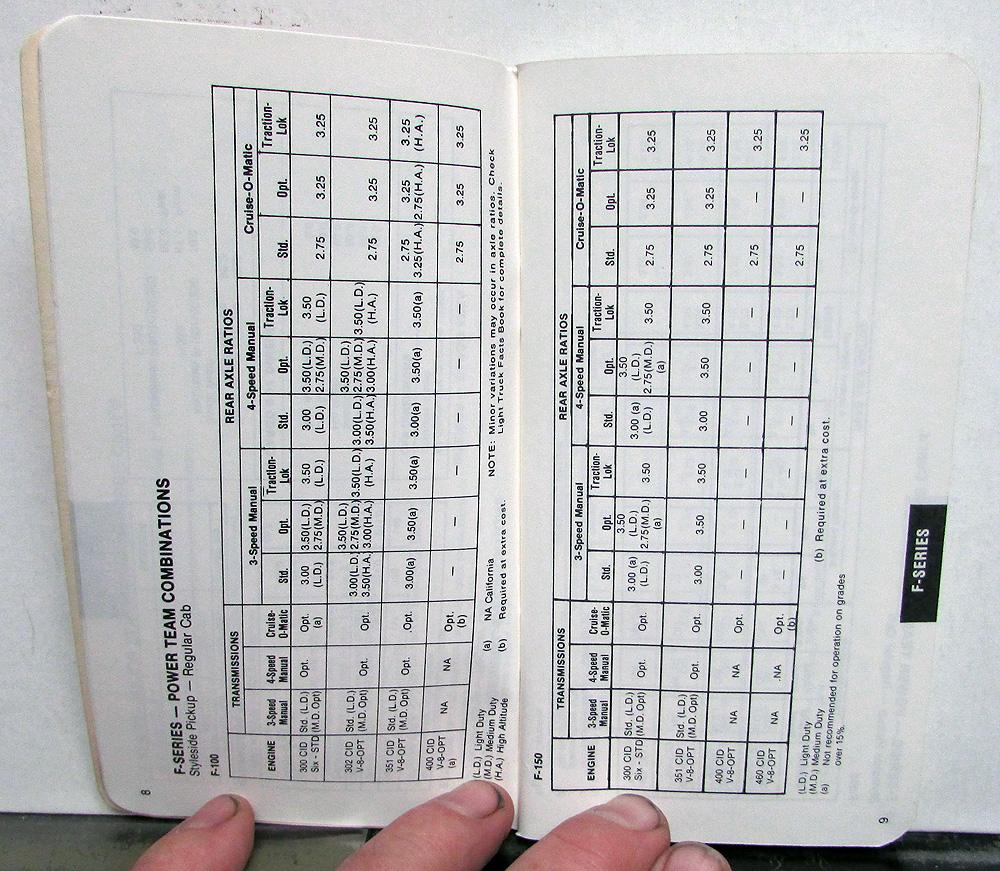 F-SERIES — POWER TEAM COMBINATIONS
Styleside Pickup — Regular Cab
F-100
TRANSMISSIONS REAR AXLE RATIOS
3-Speed Manual 4-Speed Manual Cruise-O-Matic
ENGINE 3-Speed Manual 4-Speed Manual Cruise-O-Matic Std. Opt. Traction-Lok Std. Opt. Traction-Lok Std. Opt. Traction-Lok
300 CID Std. (L.D.) Opt. Opt. 3.00 3.50(L.D.) 3.50 3.00 3.50(L.D.) 3.50 2.75 3.25 3.25
Six - STD (M.D. Opt) (a) (L.D.) 2.75(M.D.) (L.D.) (L.D.) 2.75(M.D.) (L.D.)
302 CID Std. (L.D.) Opt. Opt. 3.00(L.D.) 3.50(L.D.) 3.50(L.D.) 3.00(L.D.) 3.50(L.D.) 3.50(L.D.) 2.75 3.25 3.25
V-8-OPT (M.D. Opt) 3.50(H.A.) 2.75(M.D.) (H.A.) 3.50(H.A.) 2.75(M.D.) (H.A.)
3.00(H.A.) 3.00(H.A.)
351 CID Std. (L.D.) Opt. Opt. 3.00(a) 3.50(a) 3.50(a) 3.00(a) 3.50(a) 3.50(a) 2.75 3.25 3.25
V-8-OPT (M.D. Opt) 3.25(H.A.) 2.75(H.A.) (H.A.)
400 CID NA NA Opt. — — — — — — 2.75 3.25 3.25
V-8-OPT (b)
(a)
(L.D.) Light Duty (a) NA California NOTE: Minor variations may occur in axle ratios. Check
(M.D.) Medium Duty (b) Required at extra cost. Light Truck Facts Book for complete details.
(H.A.) High Altitude
8
F-150
TRANSMISSIONS REAR AXLE RATIOS
3-Speed Manual 4-Speed Manual Cruise-O-Matic
ENGINE 3-Speed Manual 4-Speed Manual Cruise-O-Matic Std. Opt. Traction-Lok Std. Opt. Traction-Lok Std. Opt. Traction-Lok
300 CID Std. (L.D.) Opt. Opt. 3.00 (a) 3.50 3.50 3.00 (a) 3.50 3.50 2.75 3.25 3.25
Six - STD (M.D. Opt) (L.D.) (L.D.) (L.D.) (L.D.)
2.75(M.D.) 2.75(M.D.)
(a) (a)
351 CID Std. (L.D.) Opt. Opt. 3.00 3.50 3.50 3.00 3.50 3.50 2.75 3.25 3.25
V-8-OPT (M.D. Opt)
400 CID NA NA Opt. — — — — — — 2.75 — 3.25
V-8-OPT
460 CID NA NA Opt. — — — — — — 2.75 — 3.25
V-8-OPT (b)
(L.D.) Light Duty (b) Required at extra cost.
(M.D.) Medium Duty
(a) Not recommended for operation on grades
over 15%.
F-SERIES
9